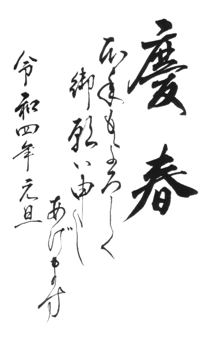 慶春
本年もよろしく
御願い申し
あげます
令和四年元旦